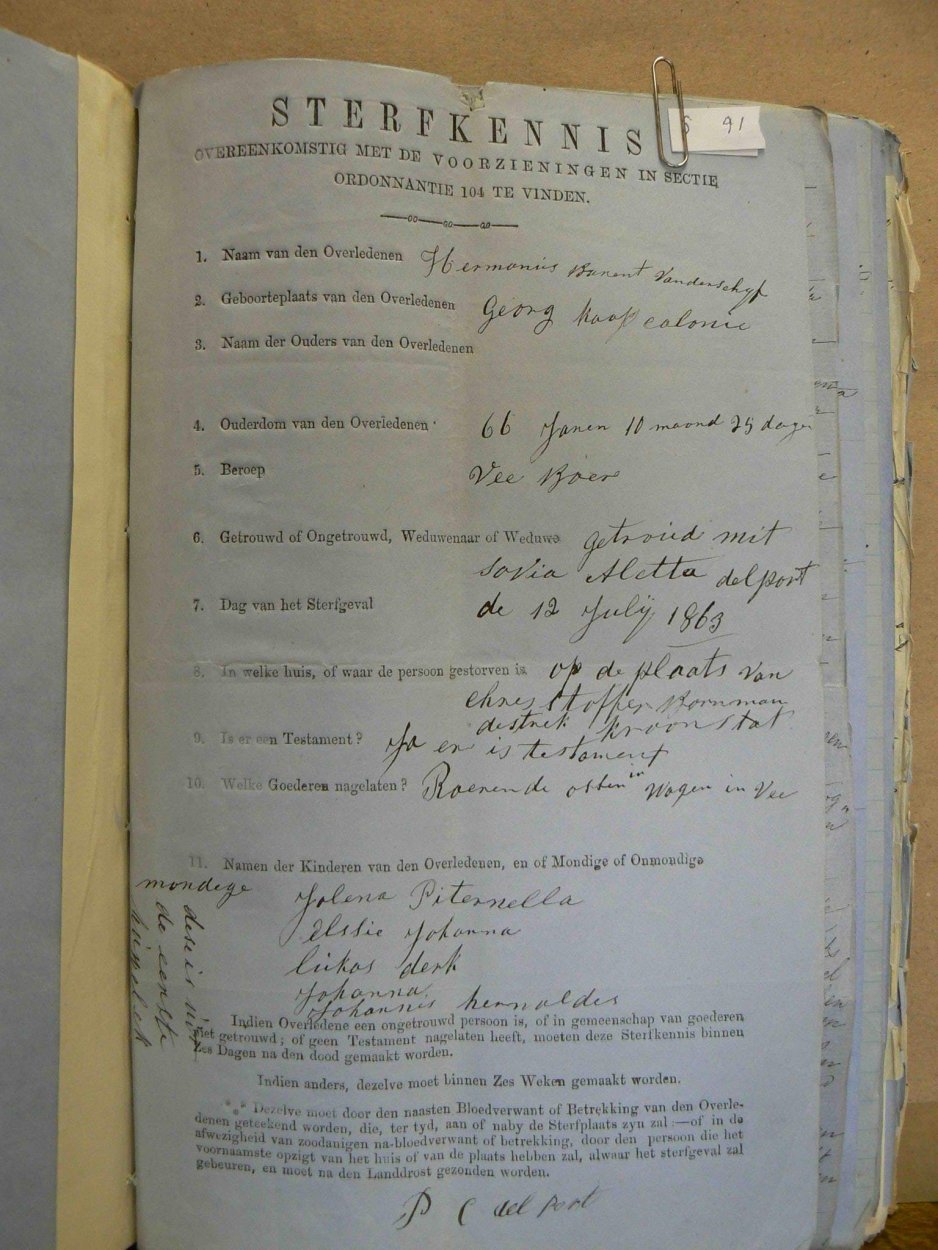 S 91
STERFKENNIS
OVEREENKOMSTIG MET DE VOORZIENINGEN IN SECTIE
ORDONNANTIE 104 TE VINDEN.
1. Naam van den Overledenen Hermanus Barent Vanderschyf
2. Geboorteplaats van den Overledenen Georg kaap colonie
3. Naam der Ouders van den Overledenen
4. Ouderdom van den Overledenen 66 Jaren 10 maand 25 dagen
5. Beroep Vee Boer
6. Getrouwd of Ongetrouwd, Weduwenaar of Weduwe getroud mit
sovia Aletta delport
7. Dag van het Sterfgeval de 12 July 1863
8. In welke huis, of waar de persoon gestorven is. op de plaats van
chresstoffer Bornman
destrek kroonstat
9. Is er een Testament? Ja er is testament
10. Welke Goederen nagelaten? Roerende ossen in wagen in vee
11. Namen der Kinderen van den Overledenen, en of Mondige of Onmondige
mondege
Jolena Piternella
Elssie Johanna
lukas derk
Johanna
Johannis hernoldes
de eerste
Indien Overledene een ongetrouwd persoon is, of in gemeenschap van goederen
niet getrouwd; of geen Testament nagelaten heeft, moeten deze Sterfkennis binnen
Zes Dagen na den dood gemaakt worden.
Indien anders, dezelve moet binnen Zes Weken gemaakt worden.
*** Dezelve moet door den naasten Bloedverwant of Betrekking van den Overle-
denen geteekend worden, die, ter tyd, aan of naby de Sterfplaats zyn zal:—of in de
afwezigheid van zoodanigen na-bloedverwant of betrekking, door den persoon die het
voornaamste opzigt van het huis of van de plaats hebben zal, alwaar het sterfgeval zal
gebeuren, en moet na den Landdrost gezonden worden.
P C del Port